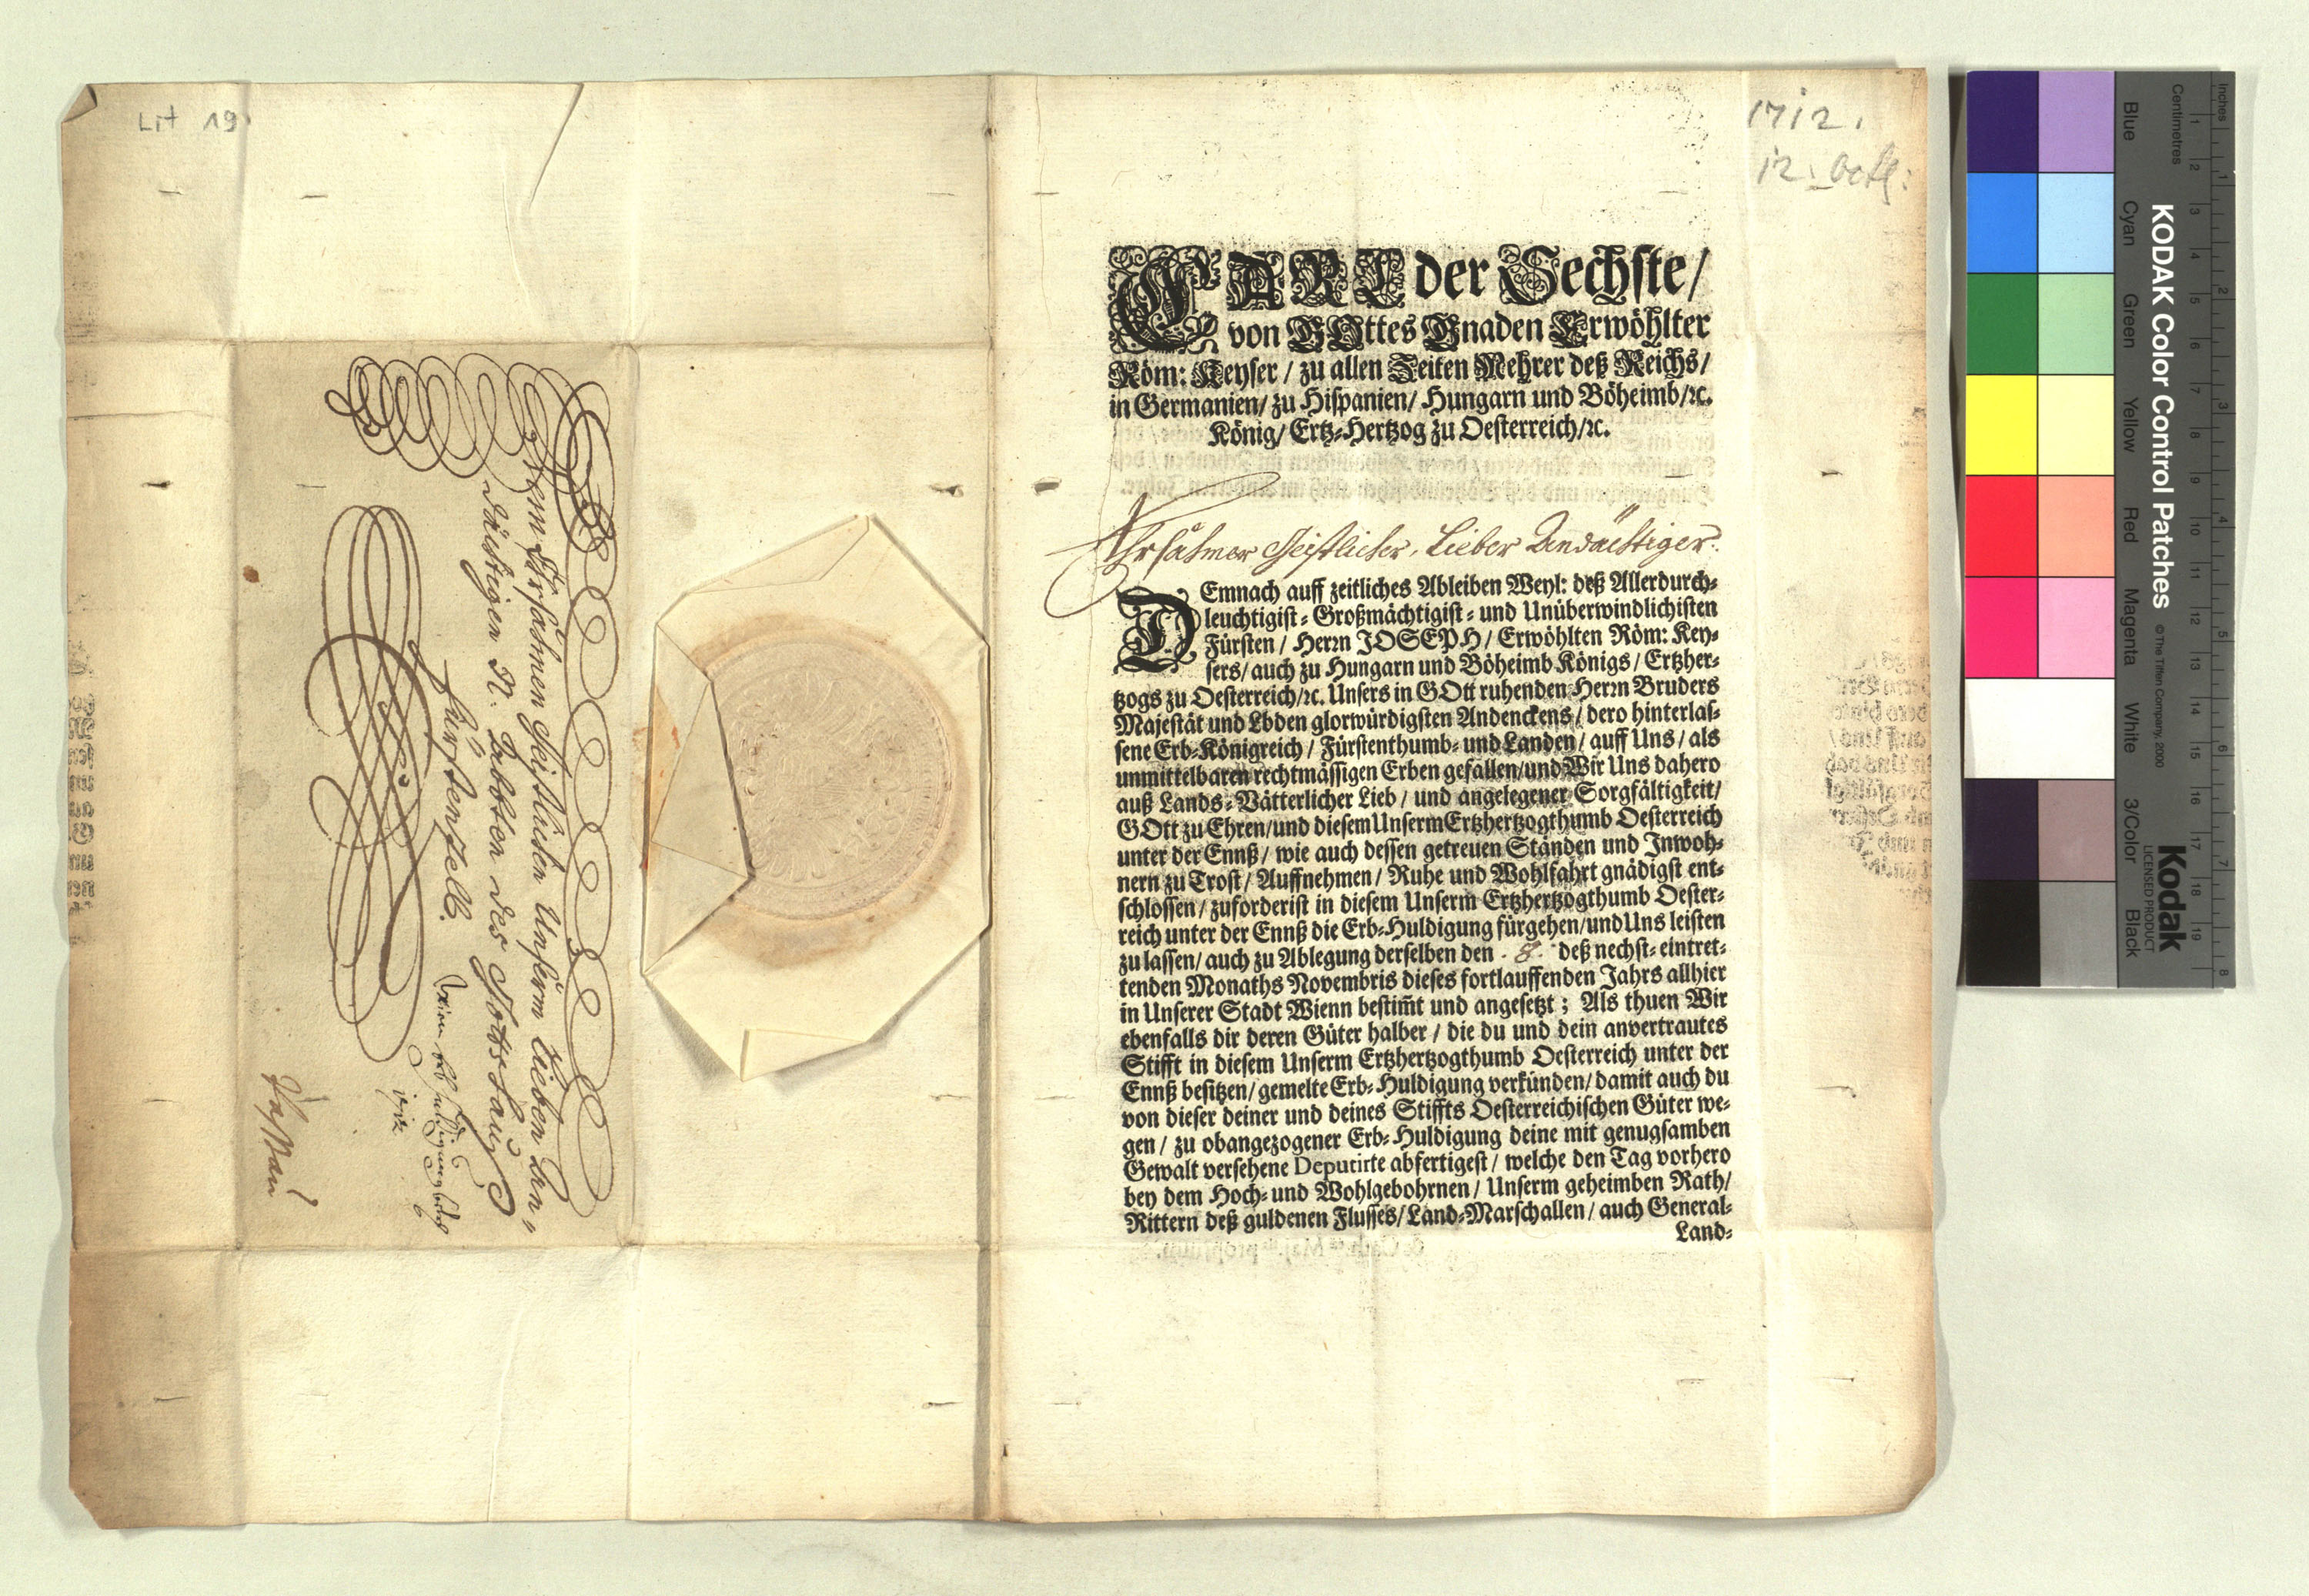 Lit 19.
1712.
12. Octł:
CARL der Sechste/
von GOttes Gnaden Erwöhlter
Röm: Keyser / zu allen Zeiten Mehrer deß Reichs/
in Germanien/ zu Hispanien/ Hungarn und Böheimb/ꝛc.
König/ Ertz-Hertzog zu Oesterreich/ꝛc.
Ehrsahmer Geistlicher, Lieber Andächtiger.
DEmnach auff zeitliches Ableiben Weyl: deß Allerdurch-
leuchtigist-Großmächtigist- und Unüberwindlichisten
Fürsten / Herrn JOSEPH / Erwöhlten Röm: Key-
sers/ auch zu Hungarn und Böheimb Königs / Ertzher-
tzogs zu Oesterreich/ꝛc. Unsers in GOtt ruhenden Herrn Bruders
Majestät und Lbden glorwürdigsten Andenckens / dero hinterlas-
sene Erb-Königreich / Fürstenthumb- und Landen / auff Uns / als
unmittelbaren rechtmässigen Erben gefallen/ und Wir Uns dahero
auß Lands-Vätterlicher Lieb / und angelegener Sorgfältigkeit/
GOtt zu Ehren/ und diesem Unserm Ertzhertzogthumb Oesterreich
unter der Ennß / wie auch dessen getreuen Ständen und Inwoh-
nern zu Trost / Auffnehmen / Ruhe und Wohlfahrt gnädigst ent-
schlossen / zuforderist in diesem Unserm Ertzhertzogthumb Oester-
reich unter der Ennß die Erb-Huldigung fürgehen/ und Uns leisten
zu lassen/ auch zu Ablegung derselben den . 8. deß nechst-eintret-
tenden Monaths Novembris dieses fortlauffenden Jahrs allhier
in Unserer Stadt Wienn bestim̄t und angesetzt ; Als thuen Wir
ebenfalls dir deren Güter halber / die du und dein anvertrautes
Stifft in diesem Unserm Ertzhertzogthumb Oesterreich unter der
Ennß besitzen/ gemelte Erb-Huldigung verkünden/ damit auch du
von dieser deiner und deines Stiffts Oesterreichischen Güter we-
gen / zu obangezogener Erb-Huldigung deine mit genugsamben
Gewalt versehene Deputirte abfertigest / welche den Tag vorhero
bey dem Hoch- und Wohlgebohrnen / Unserm geheimben Rath/
Rittern deß guldenen Flusses/ Land-Marschallen / auch General-
Land-
Dem Ersahmen Geistlichen Unserm Lieben An-
dächtigen N. Abbten des Gottshauß
Fürstenzell.
Passau
Inches
Centimetres
KODAK Color Control Patches
© The Tiffen Company, 2000
Kodak
LICENSED PRODUCT
Blue
Cyan
Green
Yellow
Red
Magenta
White
3/Color
Black
1 2 3 4 5 6 7 8 9 10 11 12 13 14 15 16 17 18 19
1 2 3 4 5 6 7 8